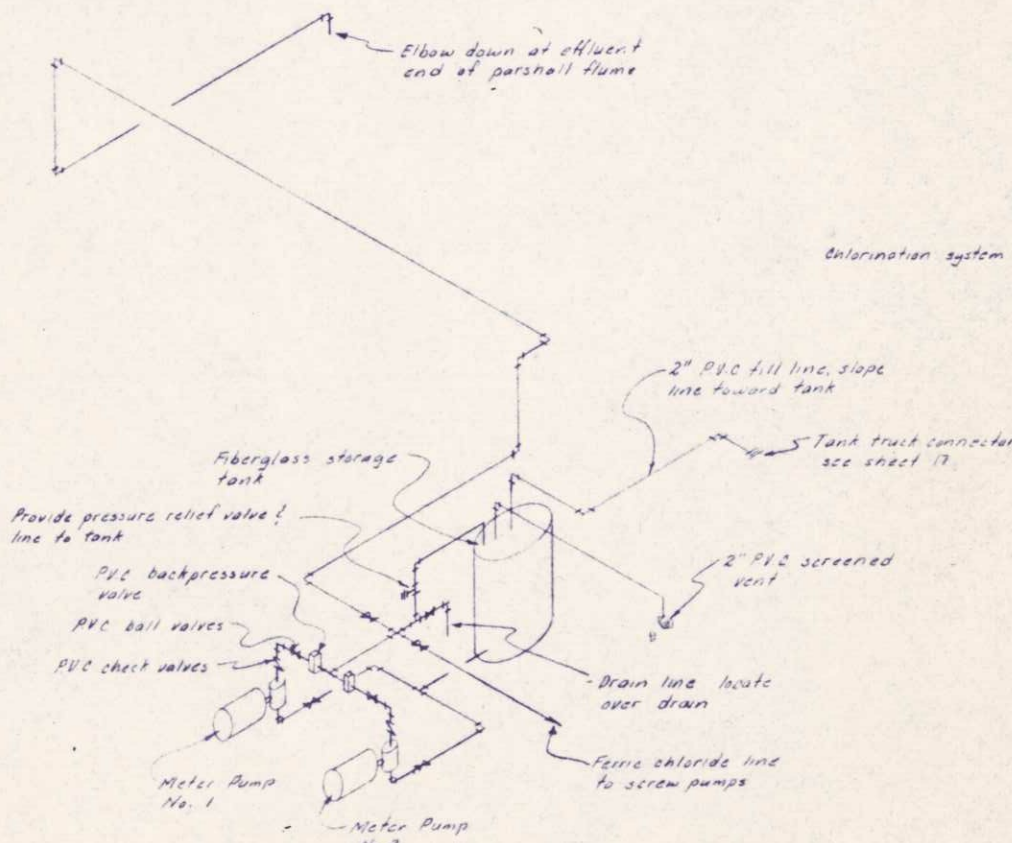 Elbow down at effluent
end of parshall flume
Chlorination system
2" PVC fill line, slope
line toward tank
Tank truck connector
see sheet 17
Fiberglass storage
tank
Provide pressure relief valve &
line to tank
PVC backpressure
valve
2" PVC screened
vent
PVC ball valves
PVC check valves
Drain line locate
over drain
Ferric chloride line
to screw pumps
Meter Pump
No. 1
Meter Pump